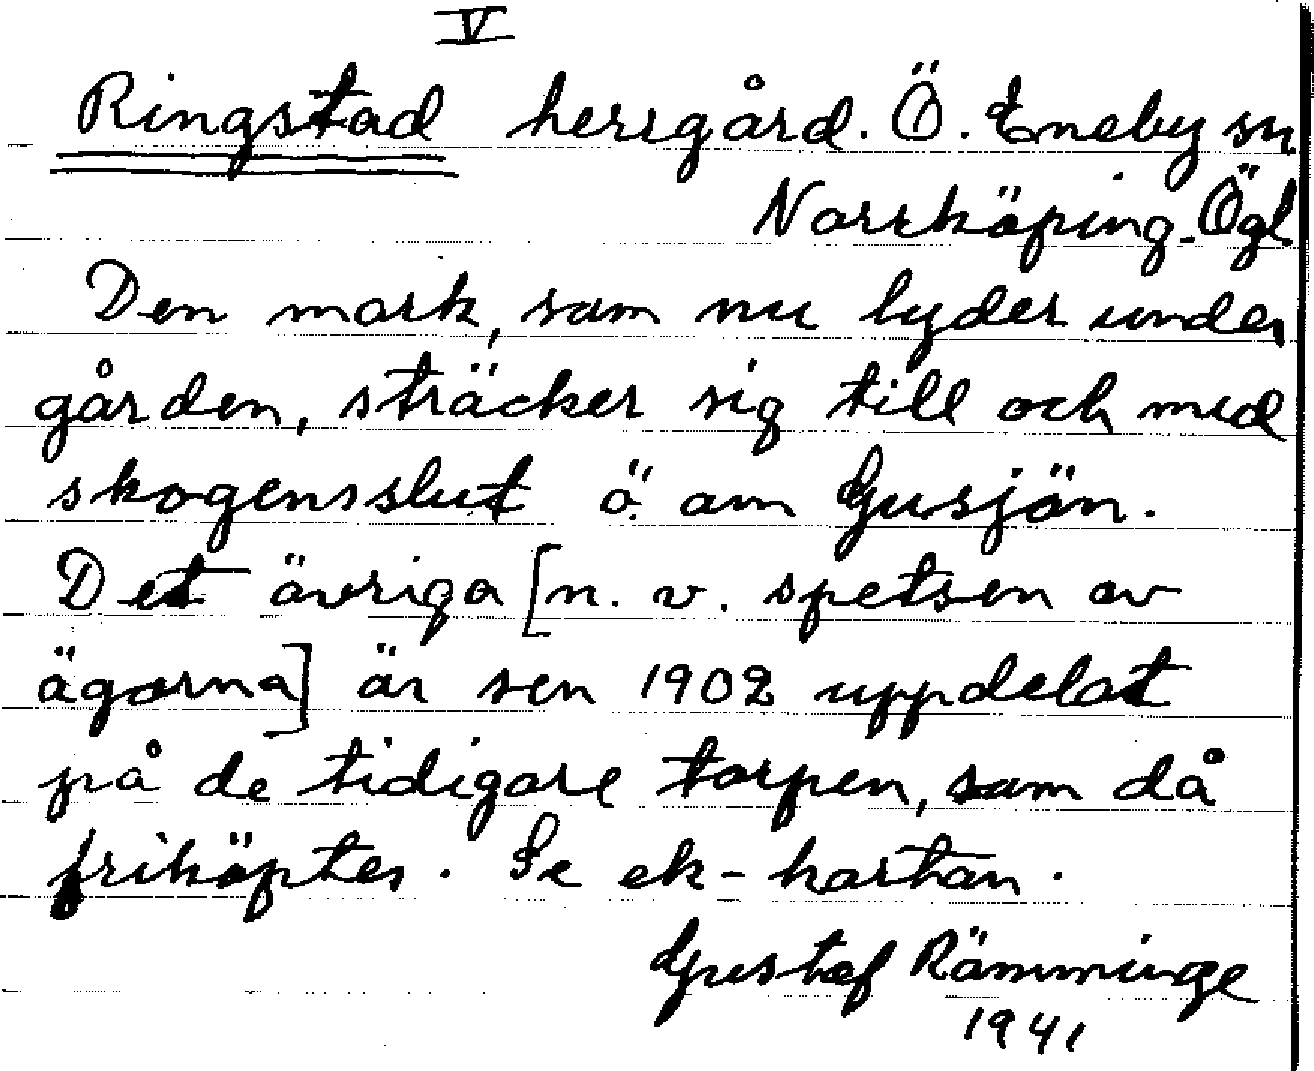 V
Ringstad herrgård. Ö. Eneby sn
Norrköping. Ögl.
Den mark, som nu lyder under
gården, sträcker sig till och med
skogensslut ö. om Gusjön.
Det övriga [n. v. spetsen av
ägorna] är sen 1902 uppdelat
på de tidigare torpen, som då
friköptes. Se ek-kartan.
Gustaf Rämminge
1941